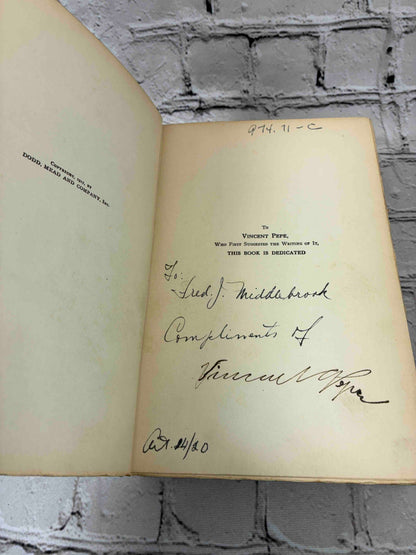 Copyright, 1917, by
DODD, MEAD AND COMPANY, Inc.
974.71-C
To
VINCENT PEPE,
Who First Suggested the Writing of It,
THIS BOOK IS DEDICATED
To:
Fred. J. Middlebrook
Compliments of
Vincent Pepe
Oct. 24/20